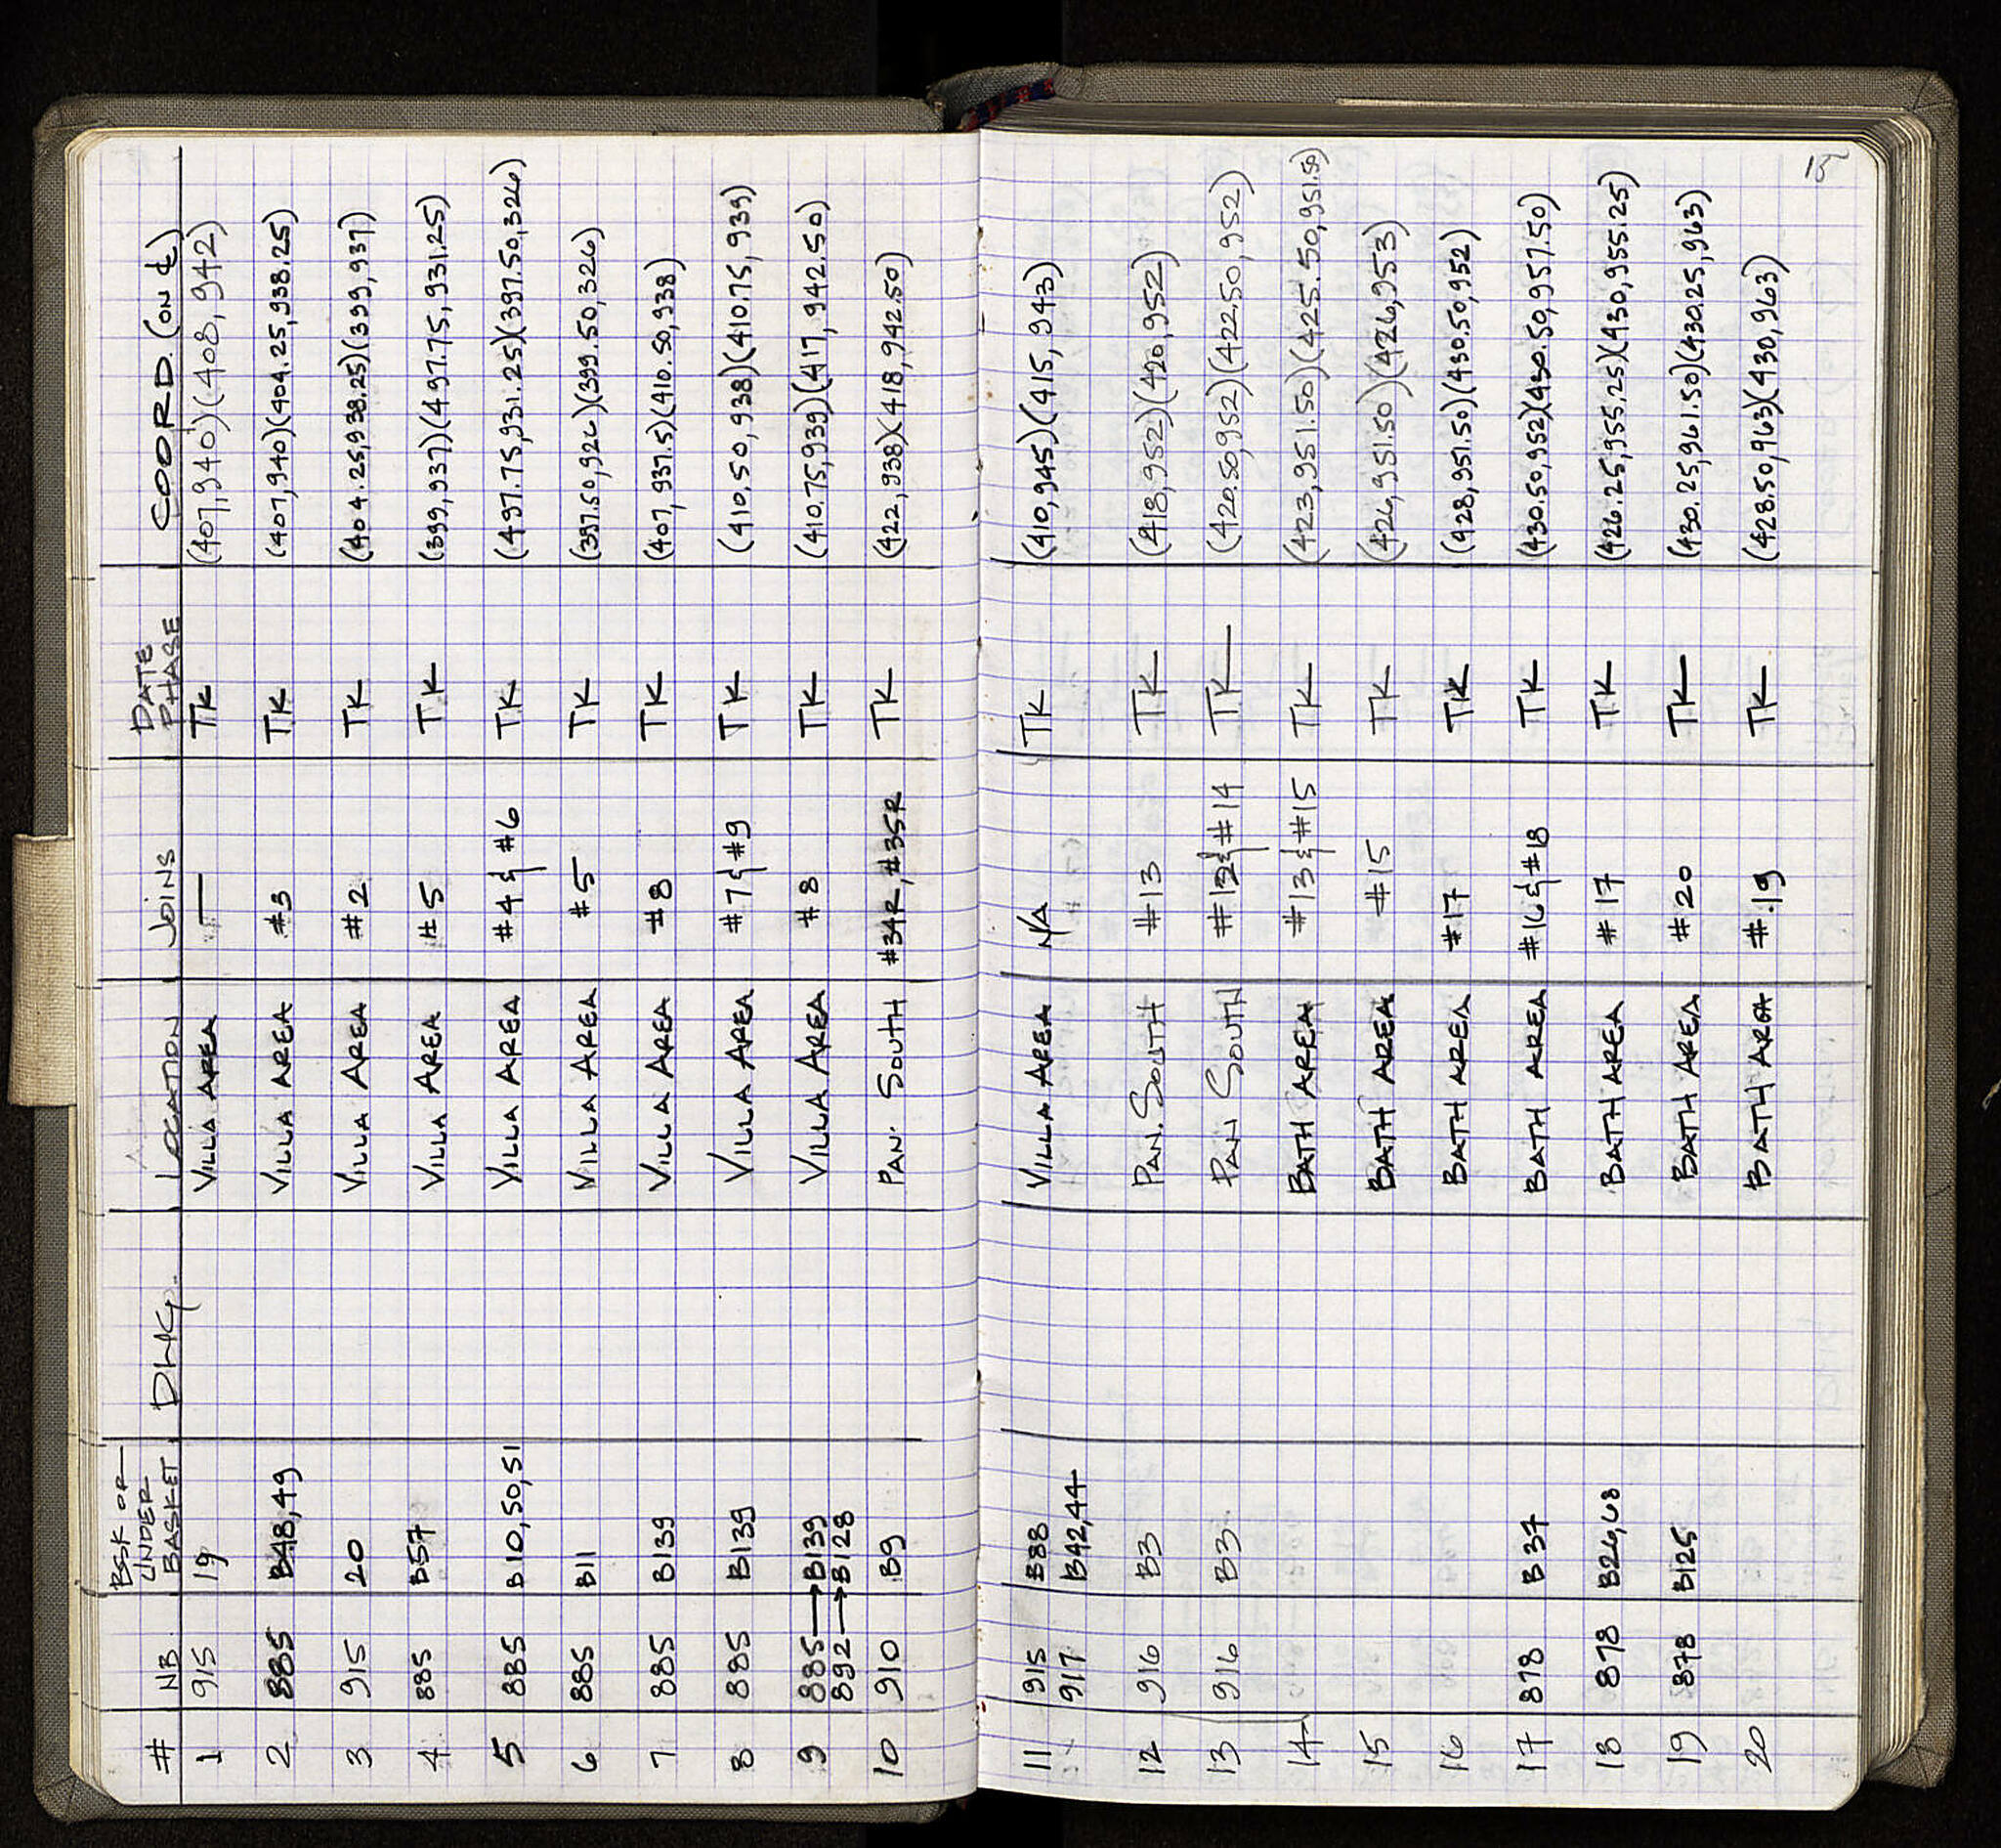 # NB BSK OR UNDER BASKET DWG. LOCATION JOINS DATE PHASE COORD. (ON ℄)
1 915 19 VILLA AREA — TK (407,940)(408,942)
2 885 B48,49 VILLA AREA #3 TK (407,940)(404.25,938.25)
3 915 20 VILLA AREA #2 TK (404.25,938.25)(399,937)
4 885 B57 VILLA AREA #5 TK (399,937)(497.75,931.25)
5 885 B10,50,51 VILLA AREA #4 & #6 TK (497.75,931.25)(397.50,326)
6 885 B11 VILLA AREA #5 TK (397.50,926)(399.50,326)
7 885 B139 VILLA AREA #8 TK (407,937.5)(410.50,938)
8 885 B139 VILLA AREA #7 & #9 TK (410.50,938)(410.75,939)
9 885→B139 VILLA AREA #8 TK (410.75,939)(417,942.50)
892→B128
10 910 B9 PAN. SOUTH #34R,#35R TK (422,938)(418,942.50)
15
11 915 B88 VILLA AREA N/A TK (410,945)(415,943)
917 B42,44
12 916 B3 PAN. SOUTH #13 TK (418,952)(420,952)
13 916 B3 PAN SOUTH #12 & #14 TK (420.50,952)(422.50,952)
14 BATH AREA #13 & #15 TK (423,951.50)(425.50,951.50)
15 BATH AREA #15 TK (426,951.50)(426,953)
16 BATH AREA #17 TK (428,951.50)(430.50,952)
17 878 B37 BATH AREA #16 & #18 TK (430.50,952)(430.50,957.50)
18 878 B26,68 BATH AREA #17 TK (426.25,955.25)(430,955.25)
19 878 B125 BATH AREA #20 TK (430.25,961.50)(430.25,963)
20 BATH AREA #19 TK (428.50,963)(430,963)